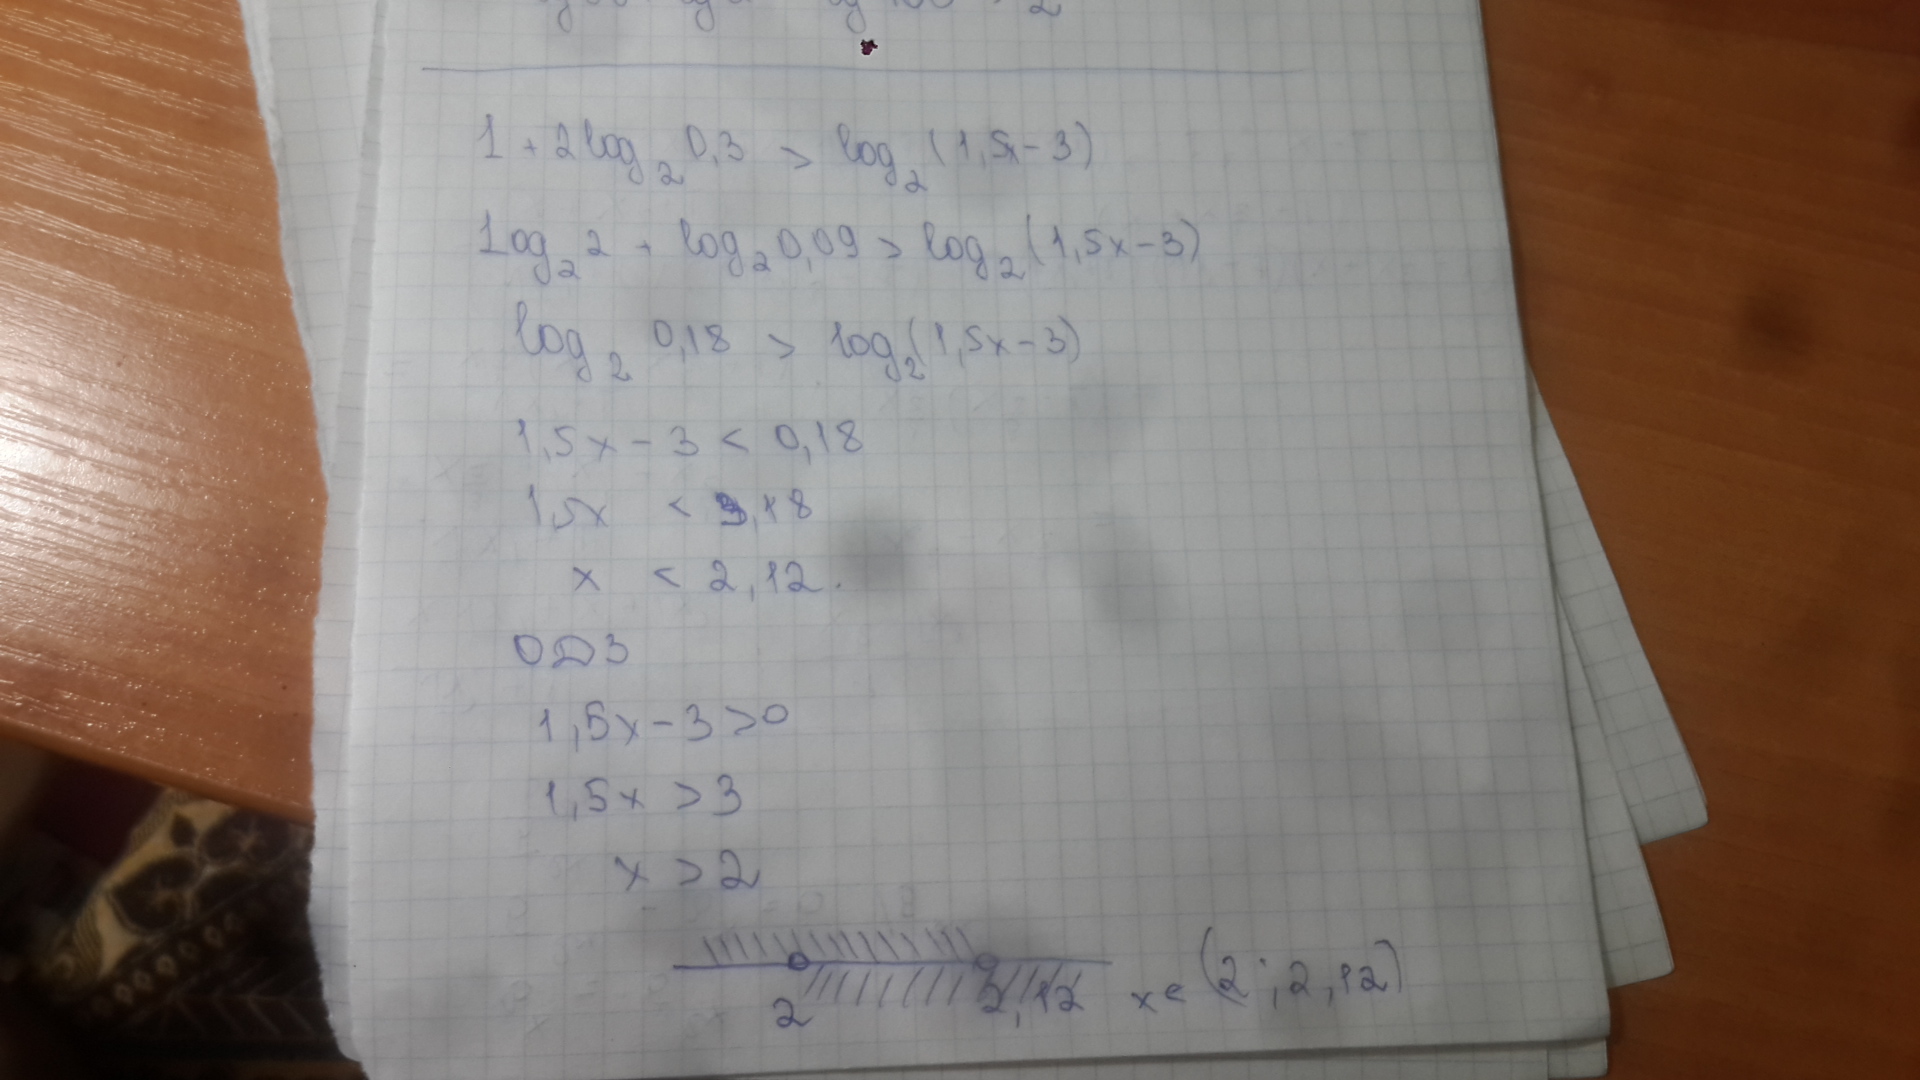 1 + 2log₂ 0,3 > log₂(1,5x-3)
log₂2 + log₂0,09 > log₂(1,5x-3)
log₂ 0,18 > log₂(1,5x-3)
1,5x - 3 < 0,18
1,5x < 3,18
x < 2,12.
ОДЗ
1,5x-3>0
1,5x >3
x >2
2 2,12 x∈(2;2,12)